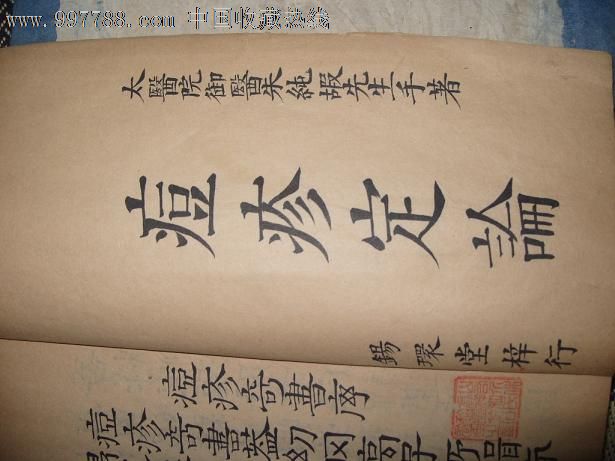 www.997788.com 中国收藏热线
太醫院御醫朱純嘏先生手著
痘疹定論
錫環堂梓行
痘疹奇書序
痘疹奇書蓋幼岡高